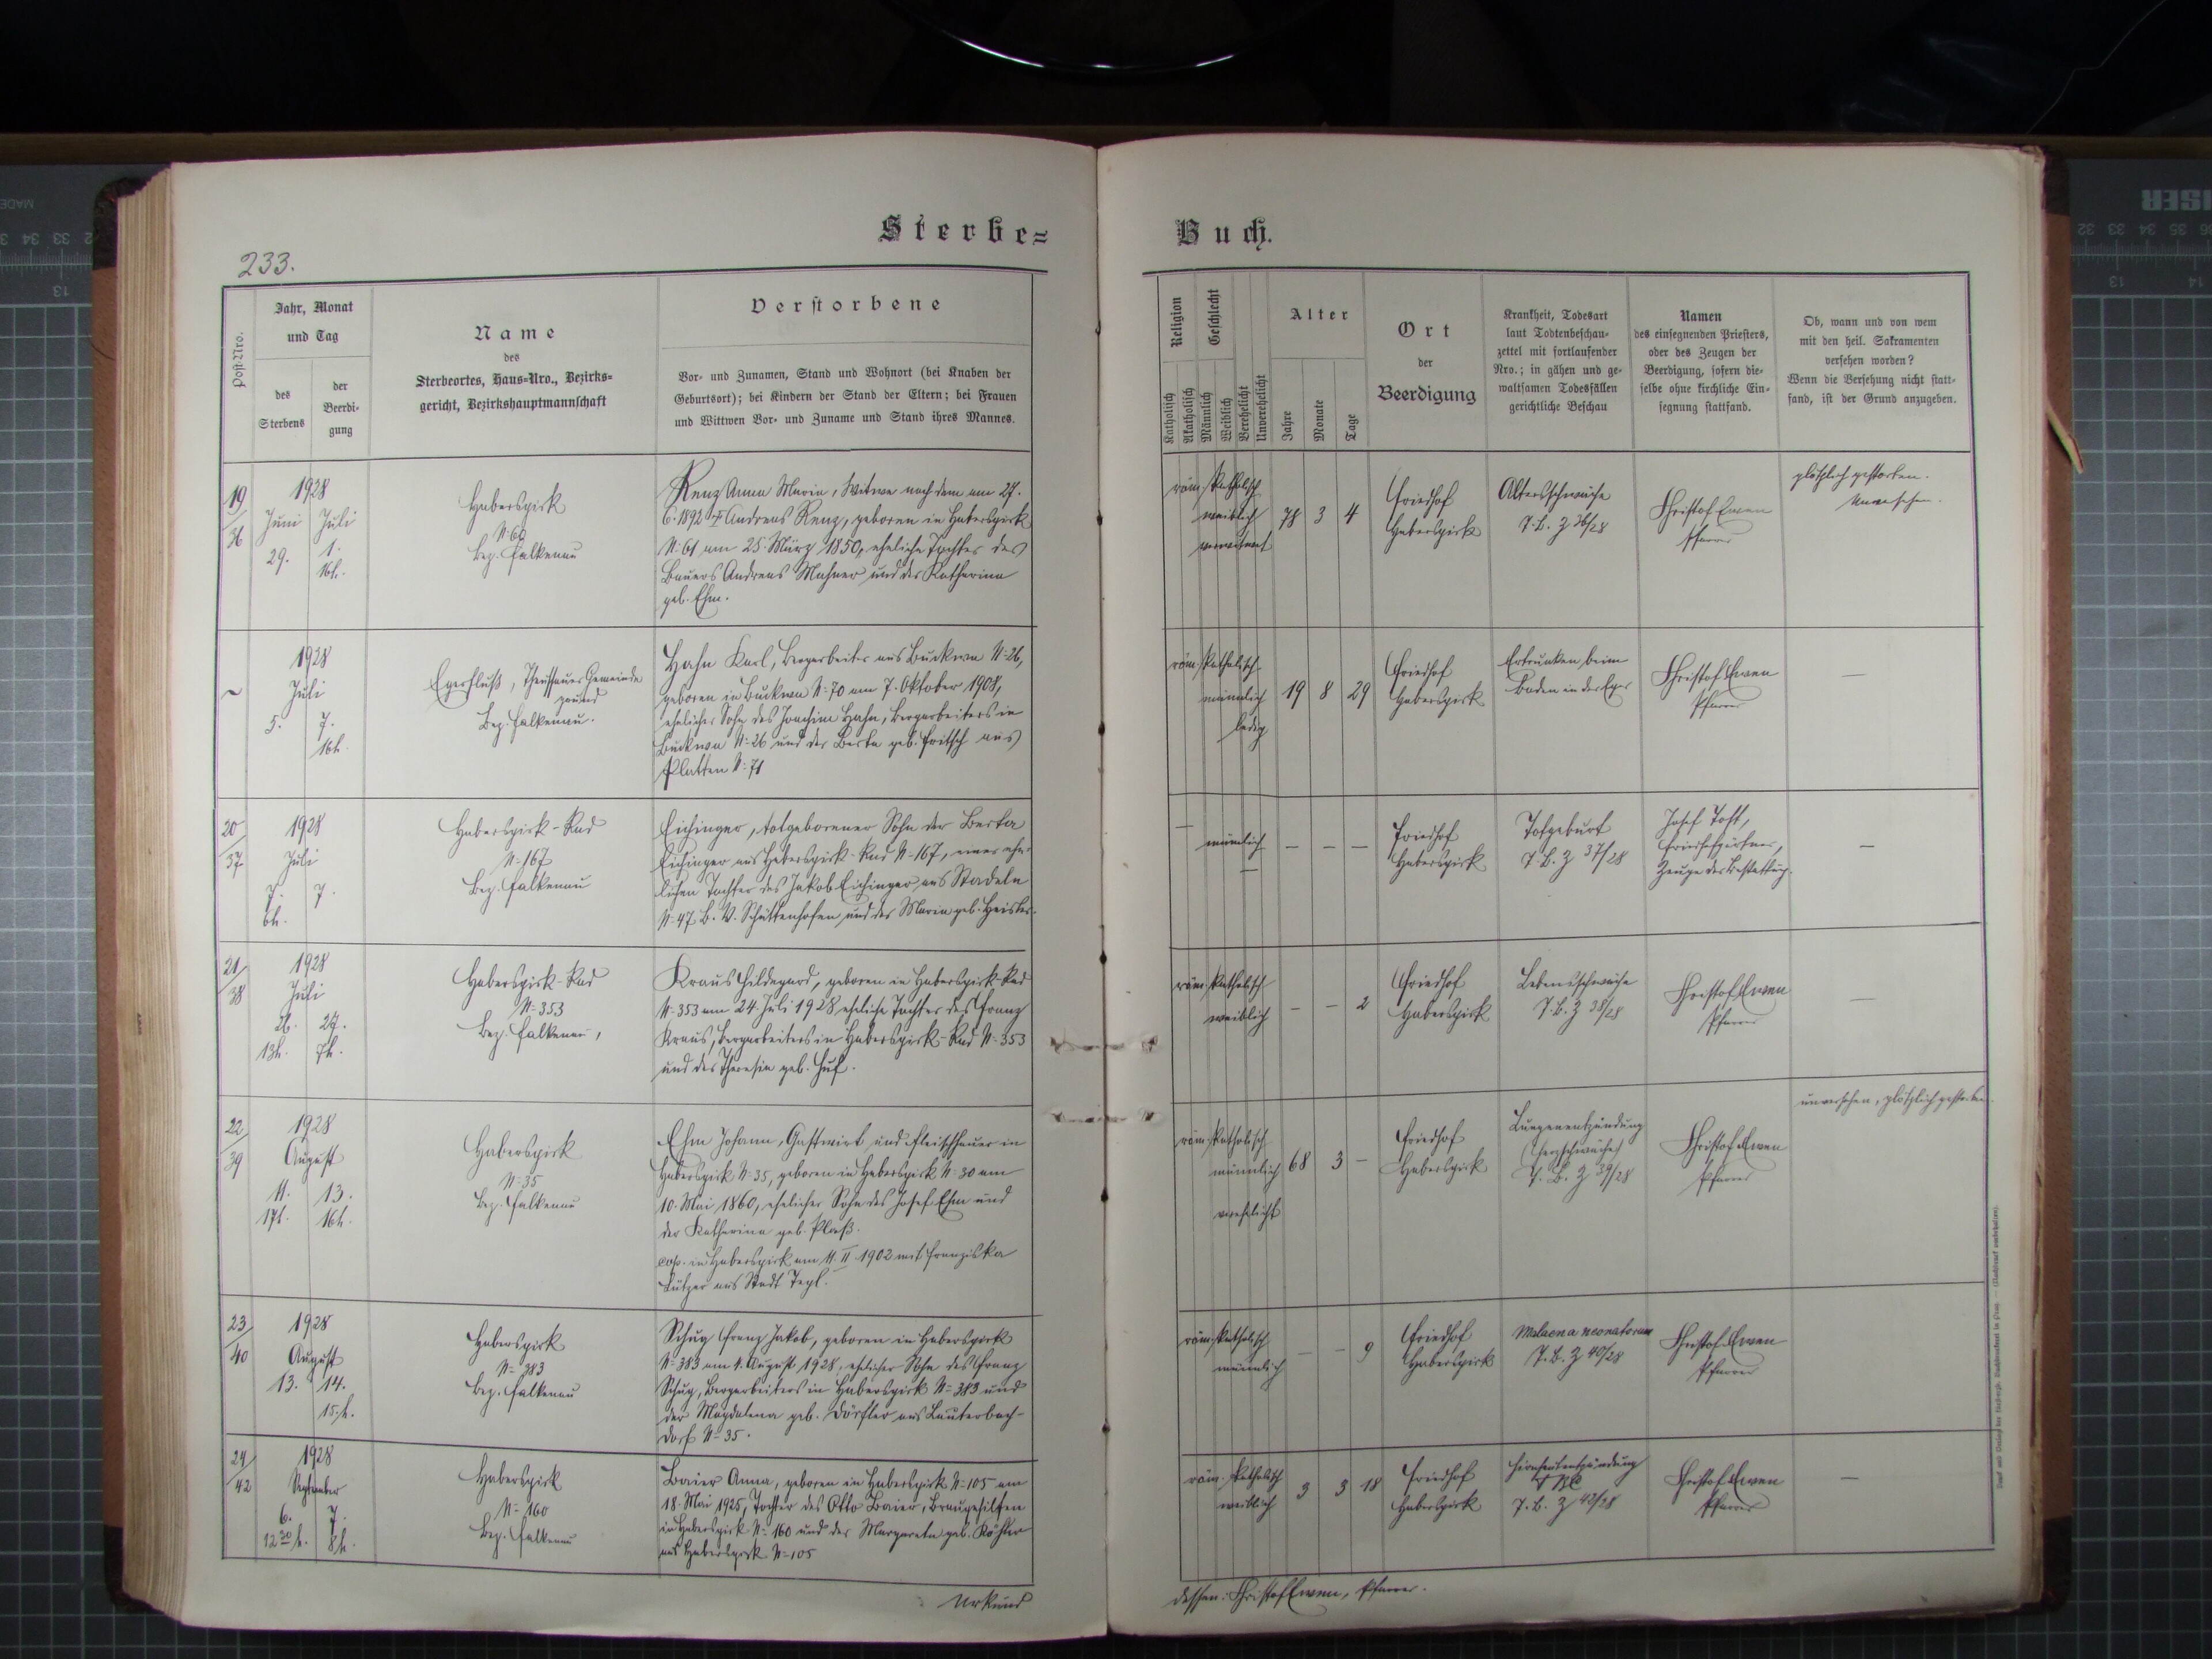 Sterbe=
Buch.
233.
Post-Nro.
Jahr, Monat
und Tag
des
Sterbens
der
Beerdi-
gung
Name
des
Sterbeortes, Haus-Nro., Bezirks-
gericht, Bezirkshauptmannschaft
Verstorbene
Vor- und Zunamen, Stand und Wohnort (bei Knaben der
Geburtsort); bei Kindern der Stand der Eltern; bei Frauen
und Wittwen Vor- und Zuname und Stand ihres Mannes.
Religion
Katholisch
Akatholisch
Geschlecht
Männlich
Weiblich
Verehelicht
Unverehelicht
Alter
Jahre
Monate
Tage
Ort
der
Beerdigung
Krankheit, Todesart
laut Todtenbeschau-
zettel mit fortlaufender
Nro.; in gähen und ge-
waltsamen Todesfällen
gerichtliche Beschau
Namen
des einsegnenden Priesters,
oder des Zeugen der
Beerdigung, sofern die-
selbe ohne kirchliche Ein-
segnung stattfand.
Ob, wann und von wem
mit den heil. Sakramenten
versehen worden?
Wenn die Versehung nicht statt-
fand, ist der Grund anzugeben.
19/36
1928
Juni Juli
29. 1.
16h.
Haberspirk
N: 60
Bez. Falkenau
Renz Anna Maria, Witwe nach dem am 27.
6. 1892 † Andreas Renz, geboren in Haberspirk
N: 61 am 25. März 1850, eheliche Tochter des
Bauers Andreas Mahner und der Katharina
geb. Ehm.
röm. katholisch
weiblich
verwitwet
78 3 4
Friedhof
Haberspirk
Altersschwäche
T. B. Z 36/28
Christof Ewen
Pfarrer
plötzlich gestorben.
Unversehen.
1928
Juli
5. 7.
16h.
Egerfluß, Theussauer Gemeinde
grund
Bez. Falkenau.
Hahn Karl, Bergarbeiter aus Buckwa N: 26,
geboren in Buckwa N: 70 am 7. Oktober 1908,
ehelicher Sohn des Joachim Hahn, Bergarbeiters in
Buckwa N: 26 und der Berta geb. Fritsch aus
Platten N: 71
röm. katholisch
männlich
ledig
19 8 29
Friedhof
Haberspirk
Ertrunken beim
Baden in der Eger
Christof Ewen
Pfarrer
—
20/37
1928
Juli
7. 7.
6h.
Haberspirk-Rad
N: 167
Bez. Falkenau
Eichinger, totgeborener Sohn der Berta
Eichinger aus Haberspirk-Rad N: 167, einer ehe-
lichen Tochter des Jakob Eichinger aus Stadeln
N: 47 B. V. Schüttenhofen und der Maria geb. Heisler.
—
männlich
—
— — —
Friedhof
Haberspirk
Totgeburt
T. B. Z 37/28
Josef Tost,
Friedhofgärtner,
Zeuge der Bestattung.
—
21/38
1928
Juli
26. 27.
13h. 7h.
Haberspirk-Rad
N: 353
Bez. Falkenau,
Kraus Hildegard, geboren in Haberspirk-Rad
N: 353 am 24. Juli 1928, eheliche Tochter des Franz
Kraus, Bergarbeiters in Haberspirk-Rad N: 353
und der Theresia geb. Huf.
röm. katholisch
weiblich
— — 2
Friedhof
Haberspirk
Lebensschwäche
T. B. Z 38/28
Christof Ewen
Pfarrer
—
22/39
1928
August
11. 13.
17h. 16h.
Haberspirk
N: 35
Bez. Falkenau
Ehm Johann, Gastwirt und Fleischhauer in
Haberspirk N: 35, geboren in Haberspirk N: 30 am
10. Mai 1860, ehelicher Sohn des Josef Ehm und
der Katharina geb. Plaß.
cop. in Haberspirk am 11. II. 1902 mit Franziska
aus Stadt Tepl.
röm. katholisch
männlich
verehelicht
68 3 —
Friedhof
Haberspirk
Lungenentzündung
(Herzschwäche)
T. B. Z 39/28
Christof Ewen
Pfarrer
unversehen, plötzlich gestorben.
23/40
1928
August
13. 14.
15.h.
Haberspirk
N: 383
Bez. Falkenau
Schug Franz Jakob, geboren in Haberspirk
N: 383 am 4. August 1928, ehelicher Sohn des Franz
Schug, Bergarbeiters in Haberspirk N: 383 und
der Magdalena geb. Dörfler aus Lauterbach-
dorf N: 35.
röm. katholisch
männlich
— — 9
Friedhof
Haberspirk
Melaena neonatorum
T. B. Z 40/28
Christof Ewen
Pfarrer
24/42
1928
September
6. 7.
12 30 h. 8h.
Haberspirk
N: 160
Bez. Falkenau
Baier Anna, geboren in Haberspirk N: 105 am
18. Mai 1925, Tochter des Otto Baier, Braugehilfen
in Haberspirk N: 160 und der Margareta geb. Köhler
aus Haberspirk N: 105
röm. katholisch
weiblich
3 3 18
Friedhof
Haberspirk
Hirnhautentzündung
T. B. Z 42/28
Christof Ewen
Pfarrer
—
Urkund
dessen: Christof Ewen, Pfarrer.